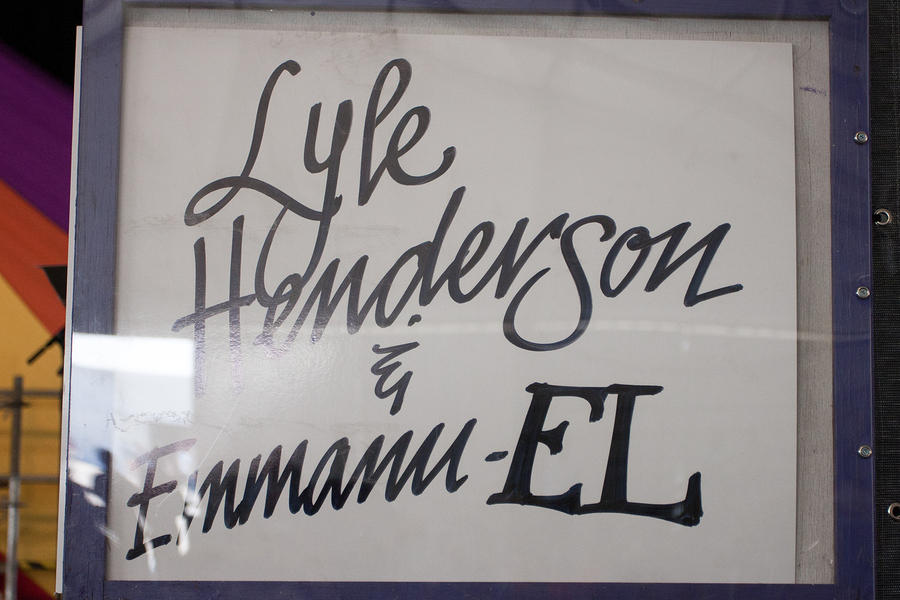 Lyle
Henderson
&
Emmanu-EL